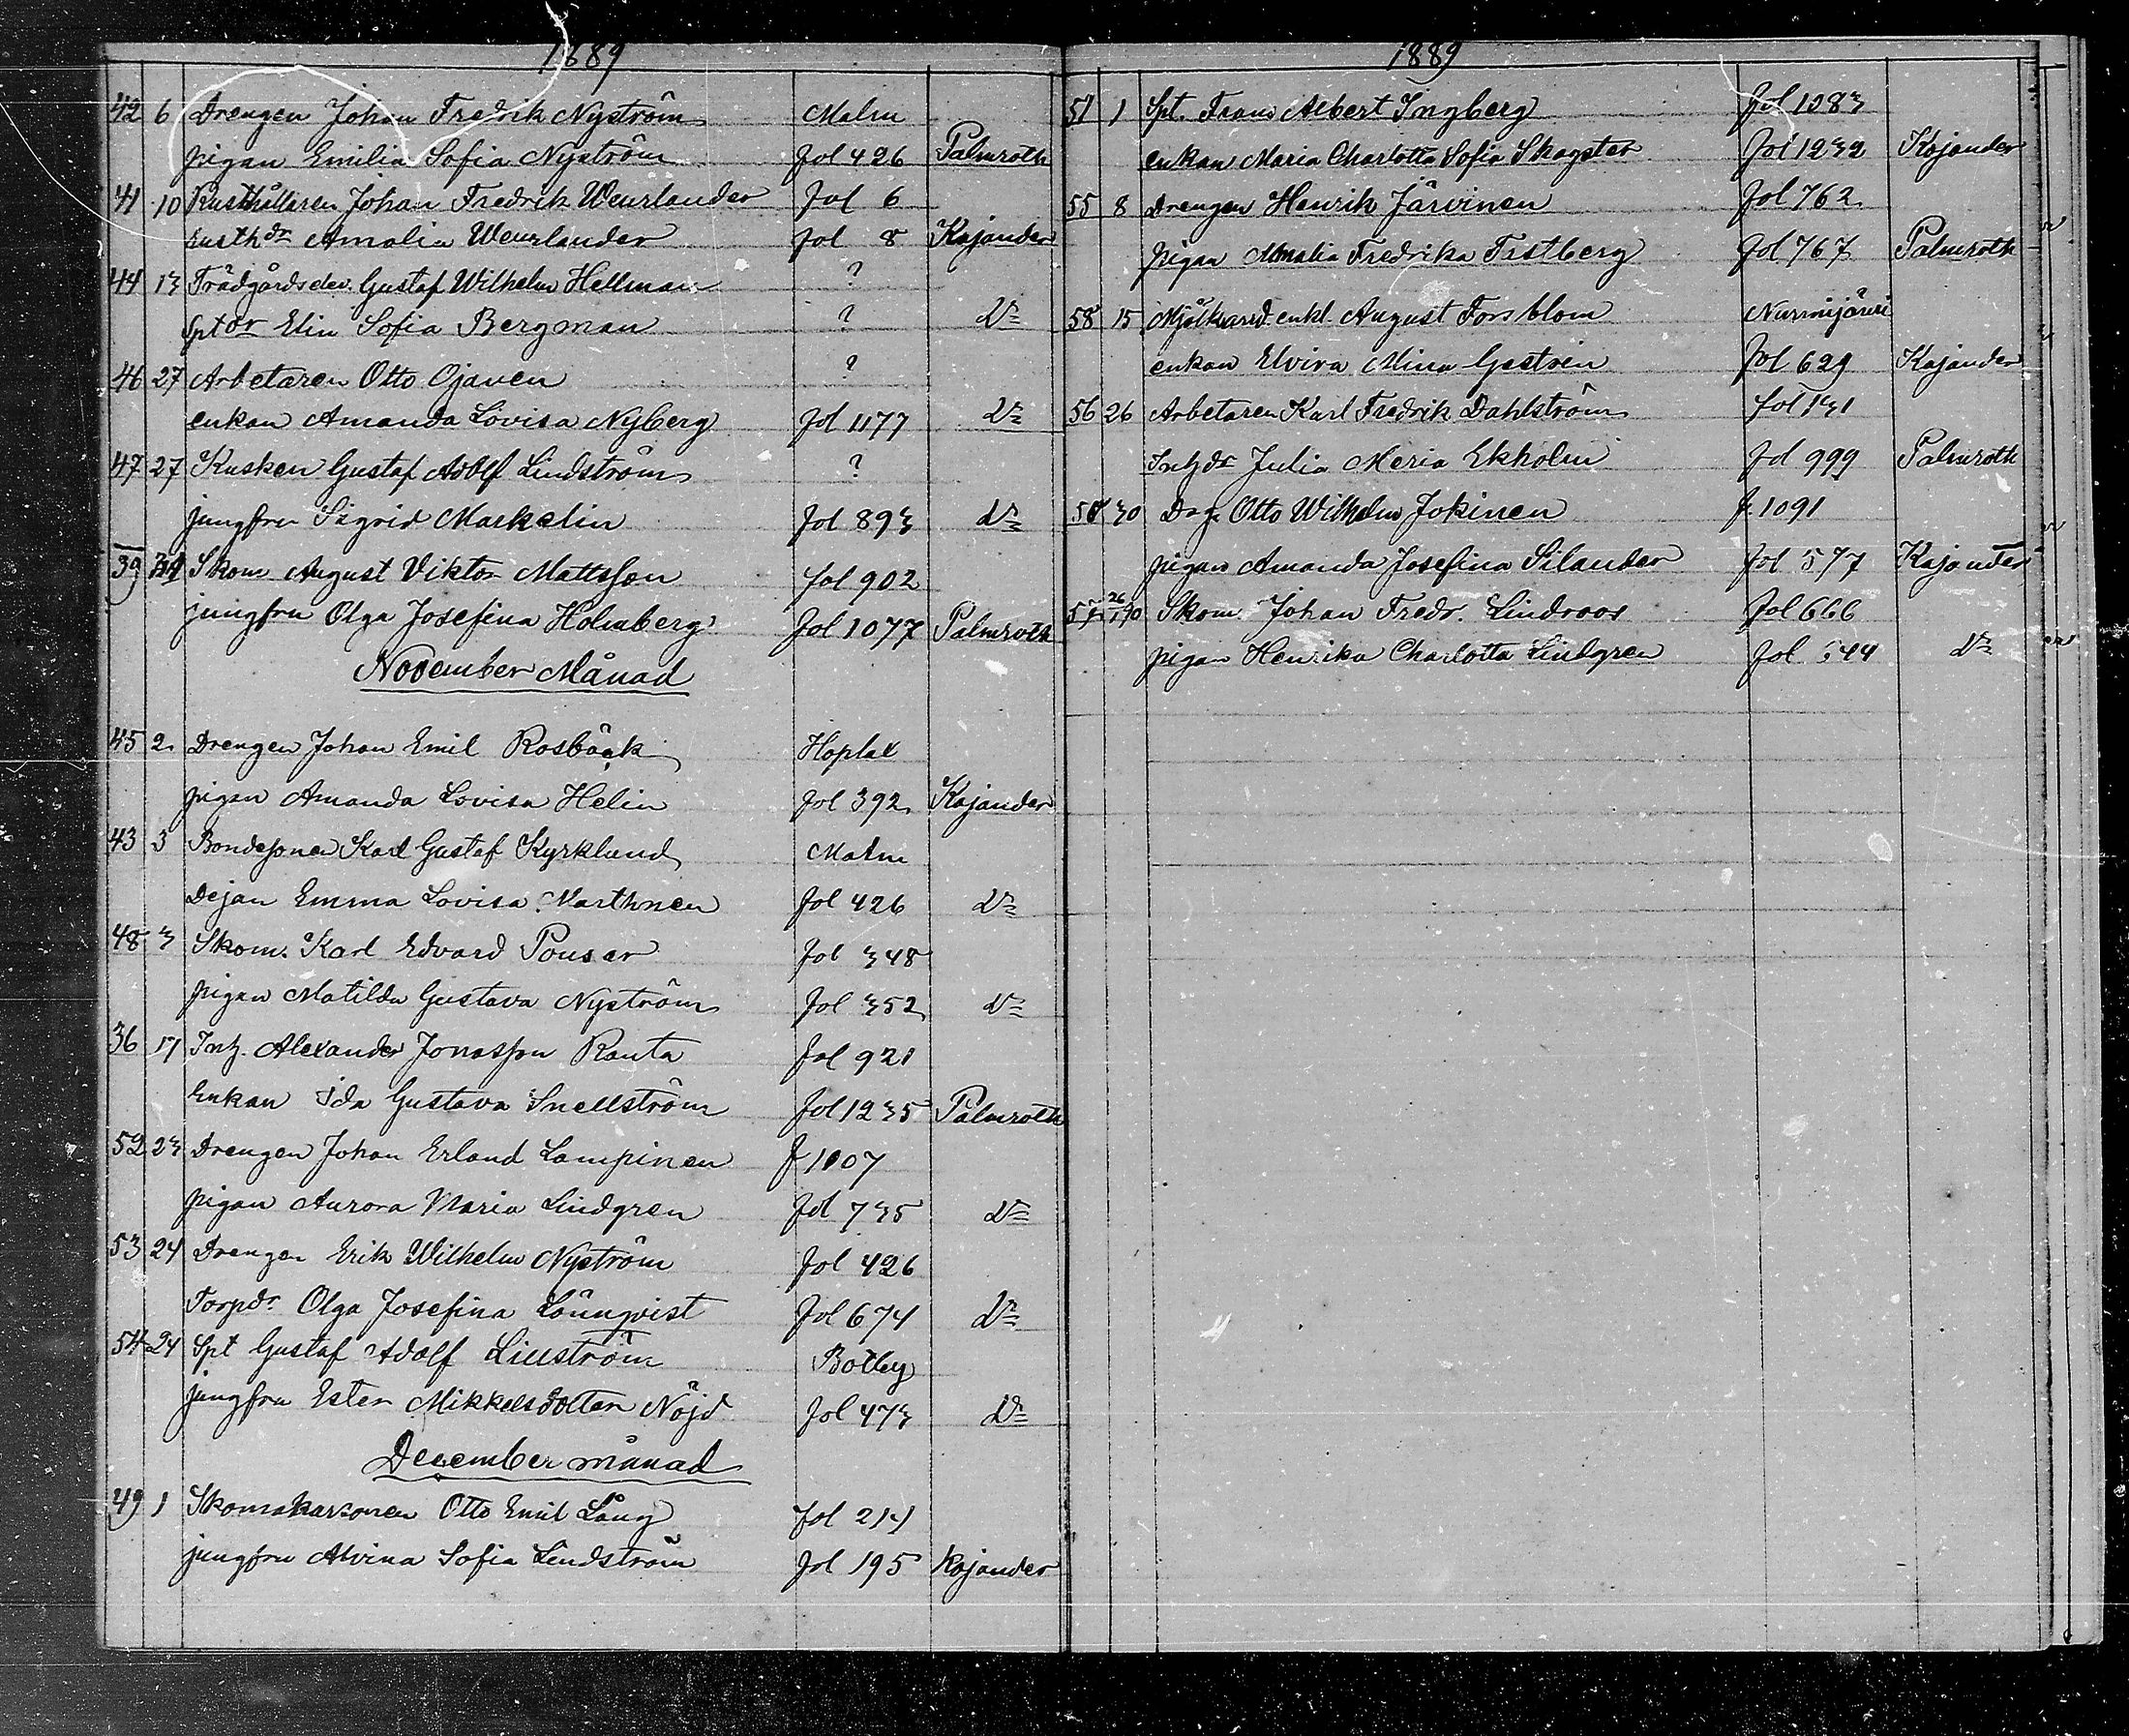 1889
42 6 Drengen Johan Fredrik Nyström Malm
pigan Emilia Sofia Nyström fol 426 Palmroth
41 10 Rusthållaren Johan Fredrik Weurlander fol 6
rusthdr Amalia Weurlander fol 8 Kajander
44 13 Trädgårdselev. Gustaf Wilhelm Hellman ?
Sptdr Elin Sofia Bergman ? do
46 27 Arbetaren Otto Ojanen ?
enkan Amanda Lovisa Nyberg fol 1177 do
47 27 Kusken Gustaf Adolf Lindström ?
jungfru Sigrid Markelin fol 893 do
39 Skom August Viktor Mattsson fol 902
jungfru Olga Josefina Holmberg fol 1077 Palmroth
November Månad
45 2. Drengen Johan Emil Rosbäck Hoplax
pigan Amanda Lovisa Helin fol 392 Kajander
43 3 Bondesonen Karl Gustaf Kyrklund Malm
Dejan Emma Lovisa Marthnen fol 426 do
48 3 Skom. Karl Edvard Pousar fol 348
pigan Matilda Gustava Nyström fol 352 do
36 17 Inh. Alexander Jonasson Ranta fol 921
Enkan Ida Gustava Snellström fol 1235 Palmroth
52 23 Drengen Johan Erland Lampinen f 1107
pigan Aurora Maria Lindgren fol 735 do
53 24 Drengen Erik Wilhelm Nyström fol 426
Torpdr Olga Josefina Lönnqvist fol 674 do
54 24 Spt Gustaf Adolf Linström Botby
jungfru Ester Mikkelsdotter Nöjd fol 473 do
December månad
49 1 Skomakarsonen Otto Emil Lång fol 214
jungfru Alvina Sofia Lindström fol 195 Kajander
1889
51 1 Spt. Frans Albert Ingberg fol 1283
enkan Maria Charlotta Sofia Skogster fol 1232 Kajander
55 8 Drengen Henrik Järvinen fol 762
pigan Amalia Fredrika Tastberg fol 767 Palmroth
58 15 enkl. August Forsblom Nurmijärvi
enkan Elvira Mina Gestrin fol 629 Kajander
56 26 Arbetaren Karl Fredrik Dahlström fol 131
Inhdr Julia Maria Ekholm fol 999 Palmroth
50 30 Drg. Otto Wilhelm Jokinen f. 1091
pigan Amanda Josefina Silander fol 577 Kajander
57 26 Skom. Johan Fredr. Lindroos fol 666
pigan Henrika Charlotta Lindgren fol 544 do